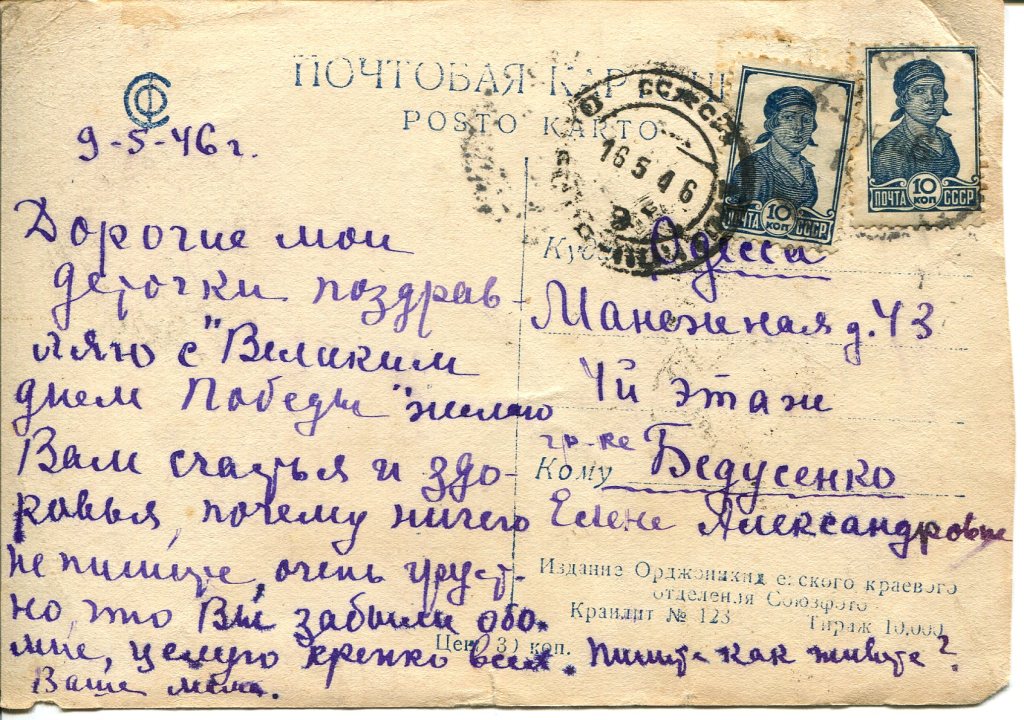 ПОЧТОВАЯ КАРТОЧКА
POSTO KARTO
СФ
9-5-46 г.
Дорогие мои
деточки поздрав-
ляю с "Великим
днем Победы" желаю
Вам счастья и здо-
ровья, почему ничего
не пишите, очень груст-
но, что Вы забыли обо
мне, целую крепко всех. Пишите как живете?
Ваша мама.
16 5 46
ПОЧТА 10 КОП СССР
ПОЧТА 10 КОП СССР
Куда Одесса
Манежная д. 43
4й этаж
гр-ке
Кому Бедусенко
Елене Александровне
Издание Орджоникидзевского краевого
отделения Союзфото
Крайлит № 123 Тираж 10,000
Цена 30 коп.